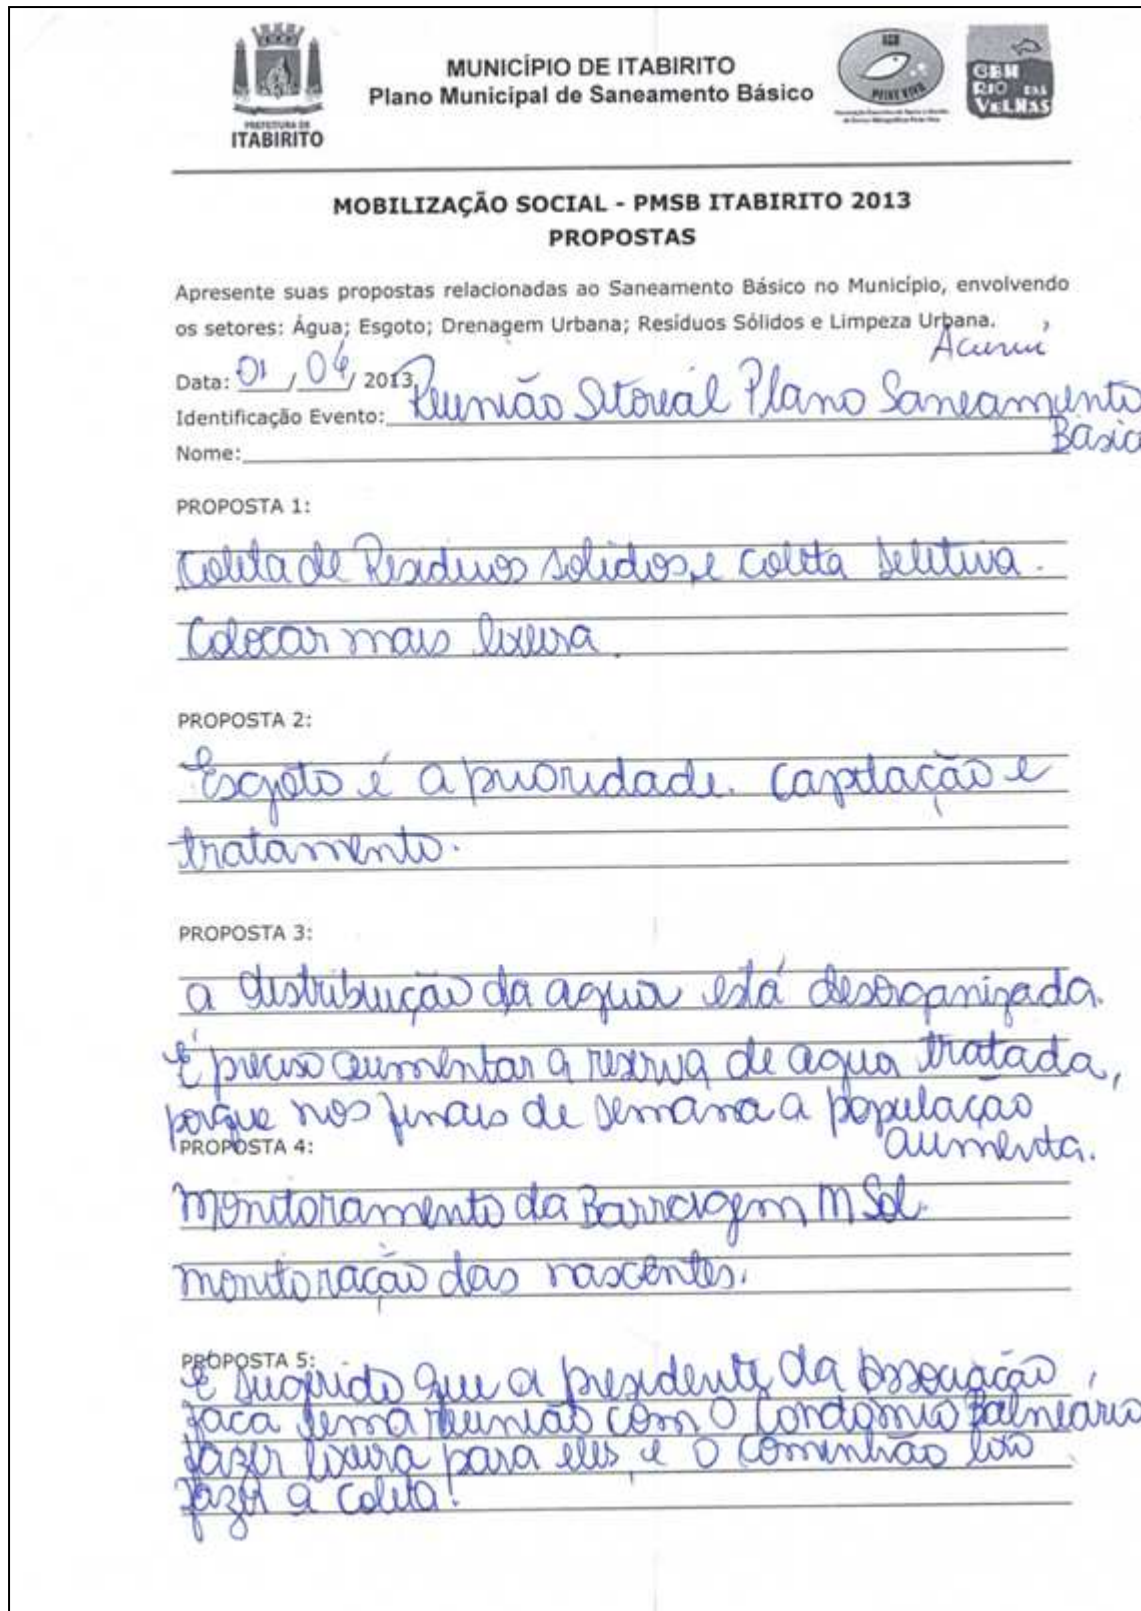 MUNICÍPIO DE ITABIRITO
Plano Municipal de Saneamento Básico
PREFEITURA DE
ITABIRITO
AGB
PEIXE VIVO
CBH
RIO DAS
VELHAS
MOBILIZAÇÃO SOCIAL - PMSB ITABIRITO 2013
PROPOSTAS
Apresente suas propostas relacionadas ao Saneamento Básico no Município, envolvendo
os setores: Água; Esgoto; Drenagem Urbana; Resíduos Sólidos e Limpeza Urbana.
Acuruí
Data: 01 / 04 / 2013
Identificação Evento: Reunião Setoreal Plano Saneamento
Basico
Nome:
PROPOSTA 1:
Coleta de Residuos solidos, e coleta seletiva.
Colocar mais lixeira.
PROPOSTA 2:
Esgoto é a prioridade. captação e
tratamento.
PROPOSTA 3:
a distribuição da agua está desorganizada.
É preciso aumentar a reserva de agua tratada,
porque nos finais de semana a população
aumenta.
PROPOSTA 4:
Monitoramento da Barragem M Sol.
monitoração das nascentes.
PROPOSTA 5:
É sugerido que a presidente da Associação
faca uma reunião com o Condomio Balneário,
fazer lixeira para eles, e o cominhão lixo
fazer a coleta!